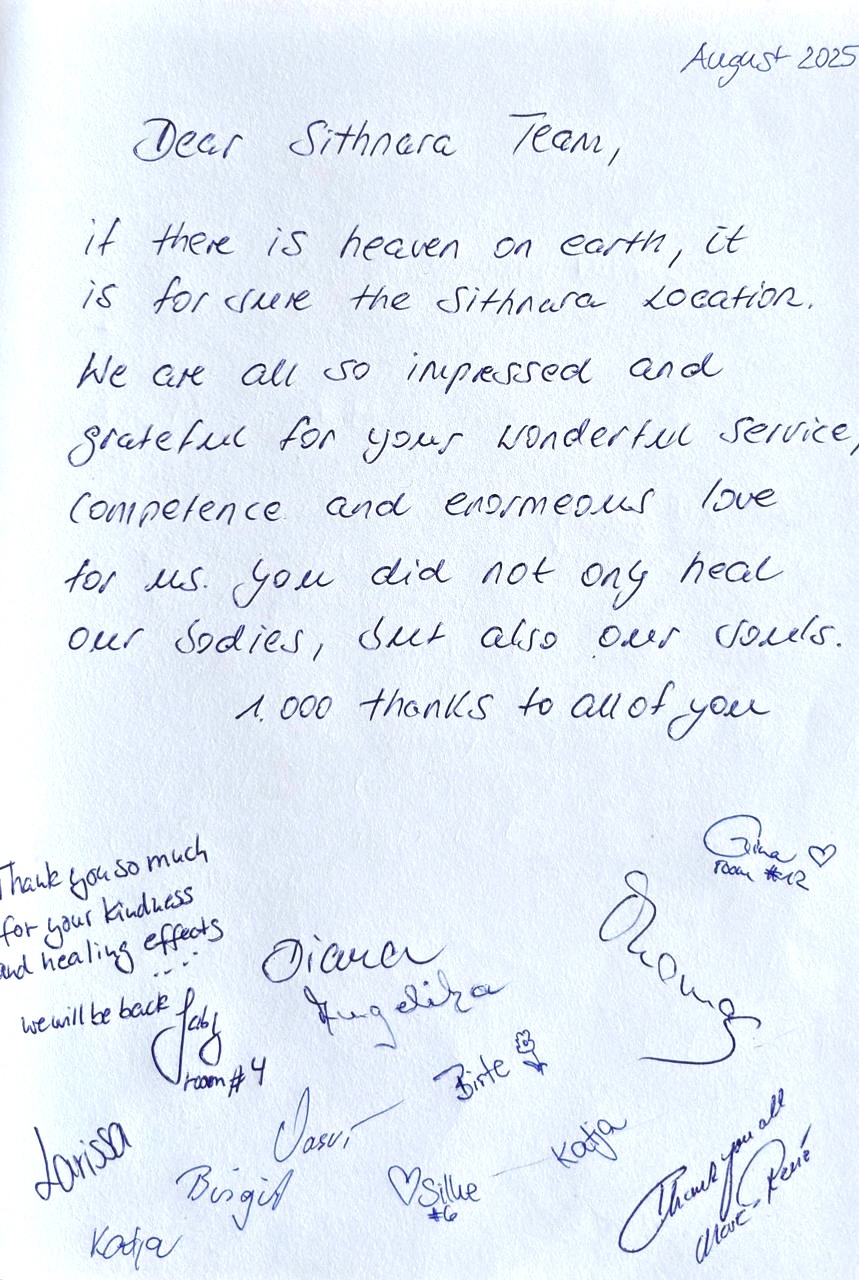 August 2025
Dear Sithnara Team,
if there is heaven on earth, it
is for sure the Sithnara Location.
We are all so impressed and
grateful for your wonderful service,
competence and enormeous love
for us. You did not only heal
our bodies, but also our souls.
1.000 thanks to all of you
Gina ♡
room #12
Thank you so much
for your kindness
and healing effects
....
we will be back
Gaby
room #4
Diana
Angelika
Thomas
Birte
Larissa
Birgit
♡ Silke
#6
Katja
Katja
Thank you all
Marc-René